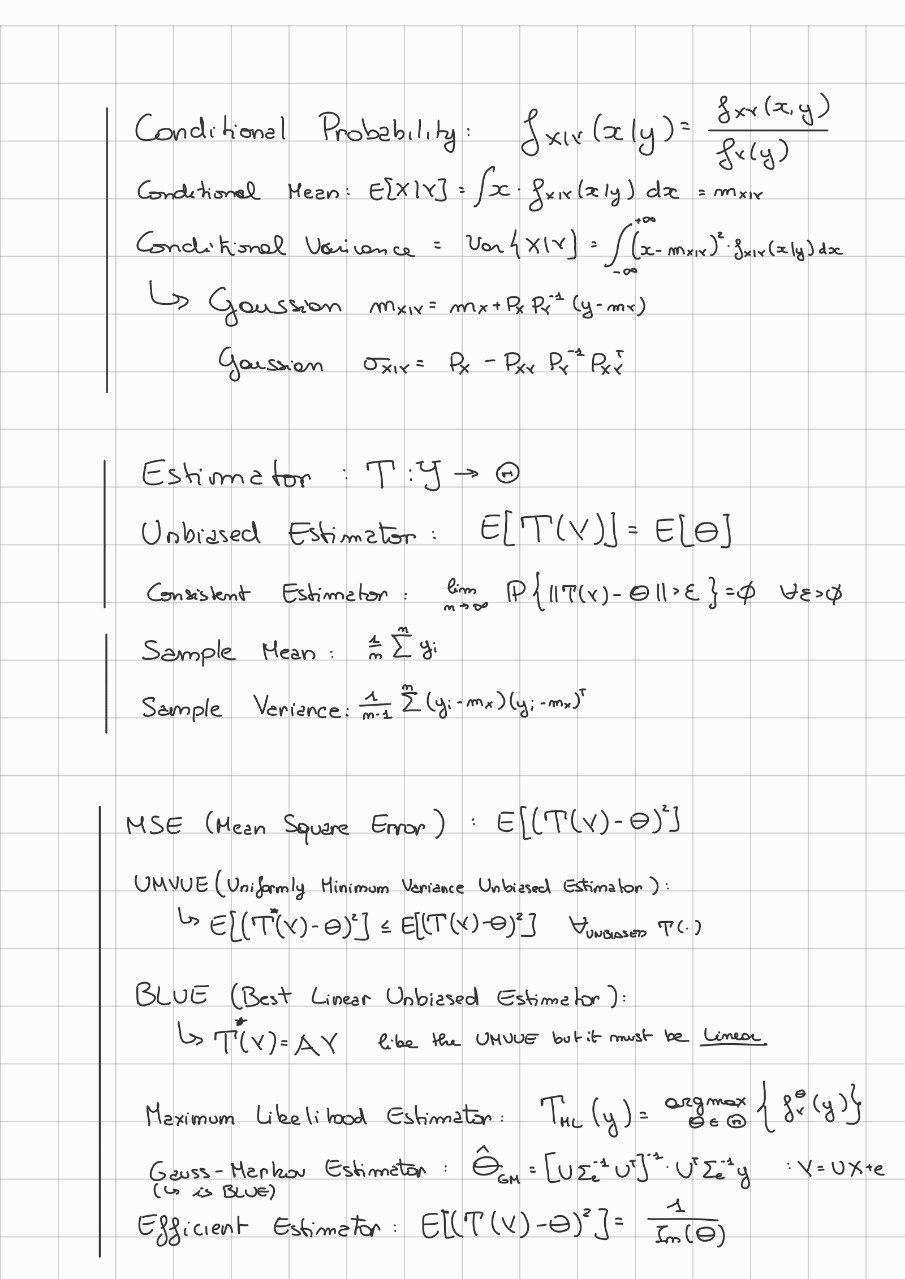 Conditional Probability: f_{X|Y}(x|y) = f_{XY}(x,y) / f_Y(y)
Conditional Mean: E[X|Y] = ∫ x · f_{X|Y}(x|y) dx = m_{X|Y}
Conditional Variance = Var{X|Y] = ∫_{-∞}^{+∞} (x - m_{X|Y})² · f_{X|Y}(x|y) dx
↳ Gaussian m_{X|Y} = m_X + P_X P_Y^{-1} (y - m_Y)
Gaussian σ_{X|Y} = P_X - P_{XY} P_Y^{-1} P_{XY}^T
Estimator : T : Y → Θ
Unbiased Estimator : E[T(Y)] = E[θ]
Consistent Estimator : lim_{n→∞} P{||T(Y) - θ|| > ε} = ϕ ∀ε>ϕ
Sample Mean : 1/n Σ^n y_i
Sample Variance : 1/(n-1) Σ^n (y_i - m_x)(y_i - m_x)^T
MSE (Mean Square Error) : E[(T(Y) - θ)²]
UMVUE (Uniformly Minimum Variance Unbiased Estimator) :
↳ E[(T*(Y) - θ)²] ≤ E[(T(Y) - θ)²] ∀_{UNBIASED} T(·)
BLUE (Best Linear Unbiased Estimator) :
↳ T*(Y) = AY like the UMVUE but it must be Linear
Maximum Likelihood Estimator : T_{ML}(y) = argmax_{θ∈Θ} {f_Y^θ(y)}
Gauss-Markov Estimator : θ̂_{GM} = [U Σ_e^{-1} U^T]^{-1} · U^T Σ_e^{-1} y : Y = UX + e
(↳ is BLUE)
Efficient Estimator : E[(T(Y) - θ)²] = 1 / I_n(θ)